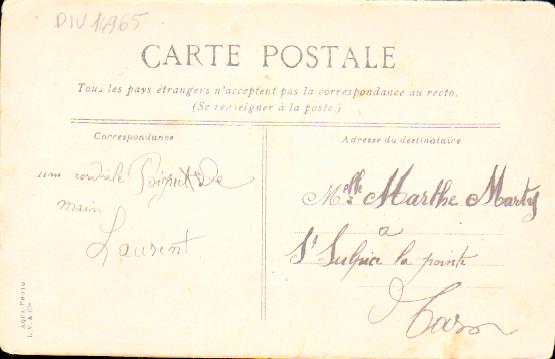 DIV 14965
CARTE POSTALE
Tous les pays étrangers n'acceptent pas la correspondance au recto.
(Se renseigner à la poste.)
Correspondance
une cordiale Poignée De
main
Laurent
Adresse du destinataire
Melle Marthe Martij
a
St Sulpice la pointe
Tarn
AQUA-PHOTO
L. V. & Cie